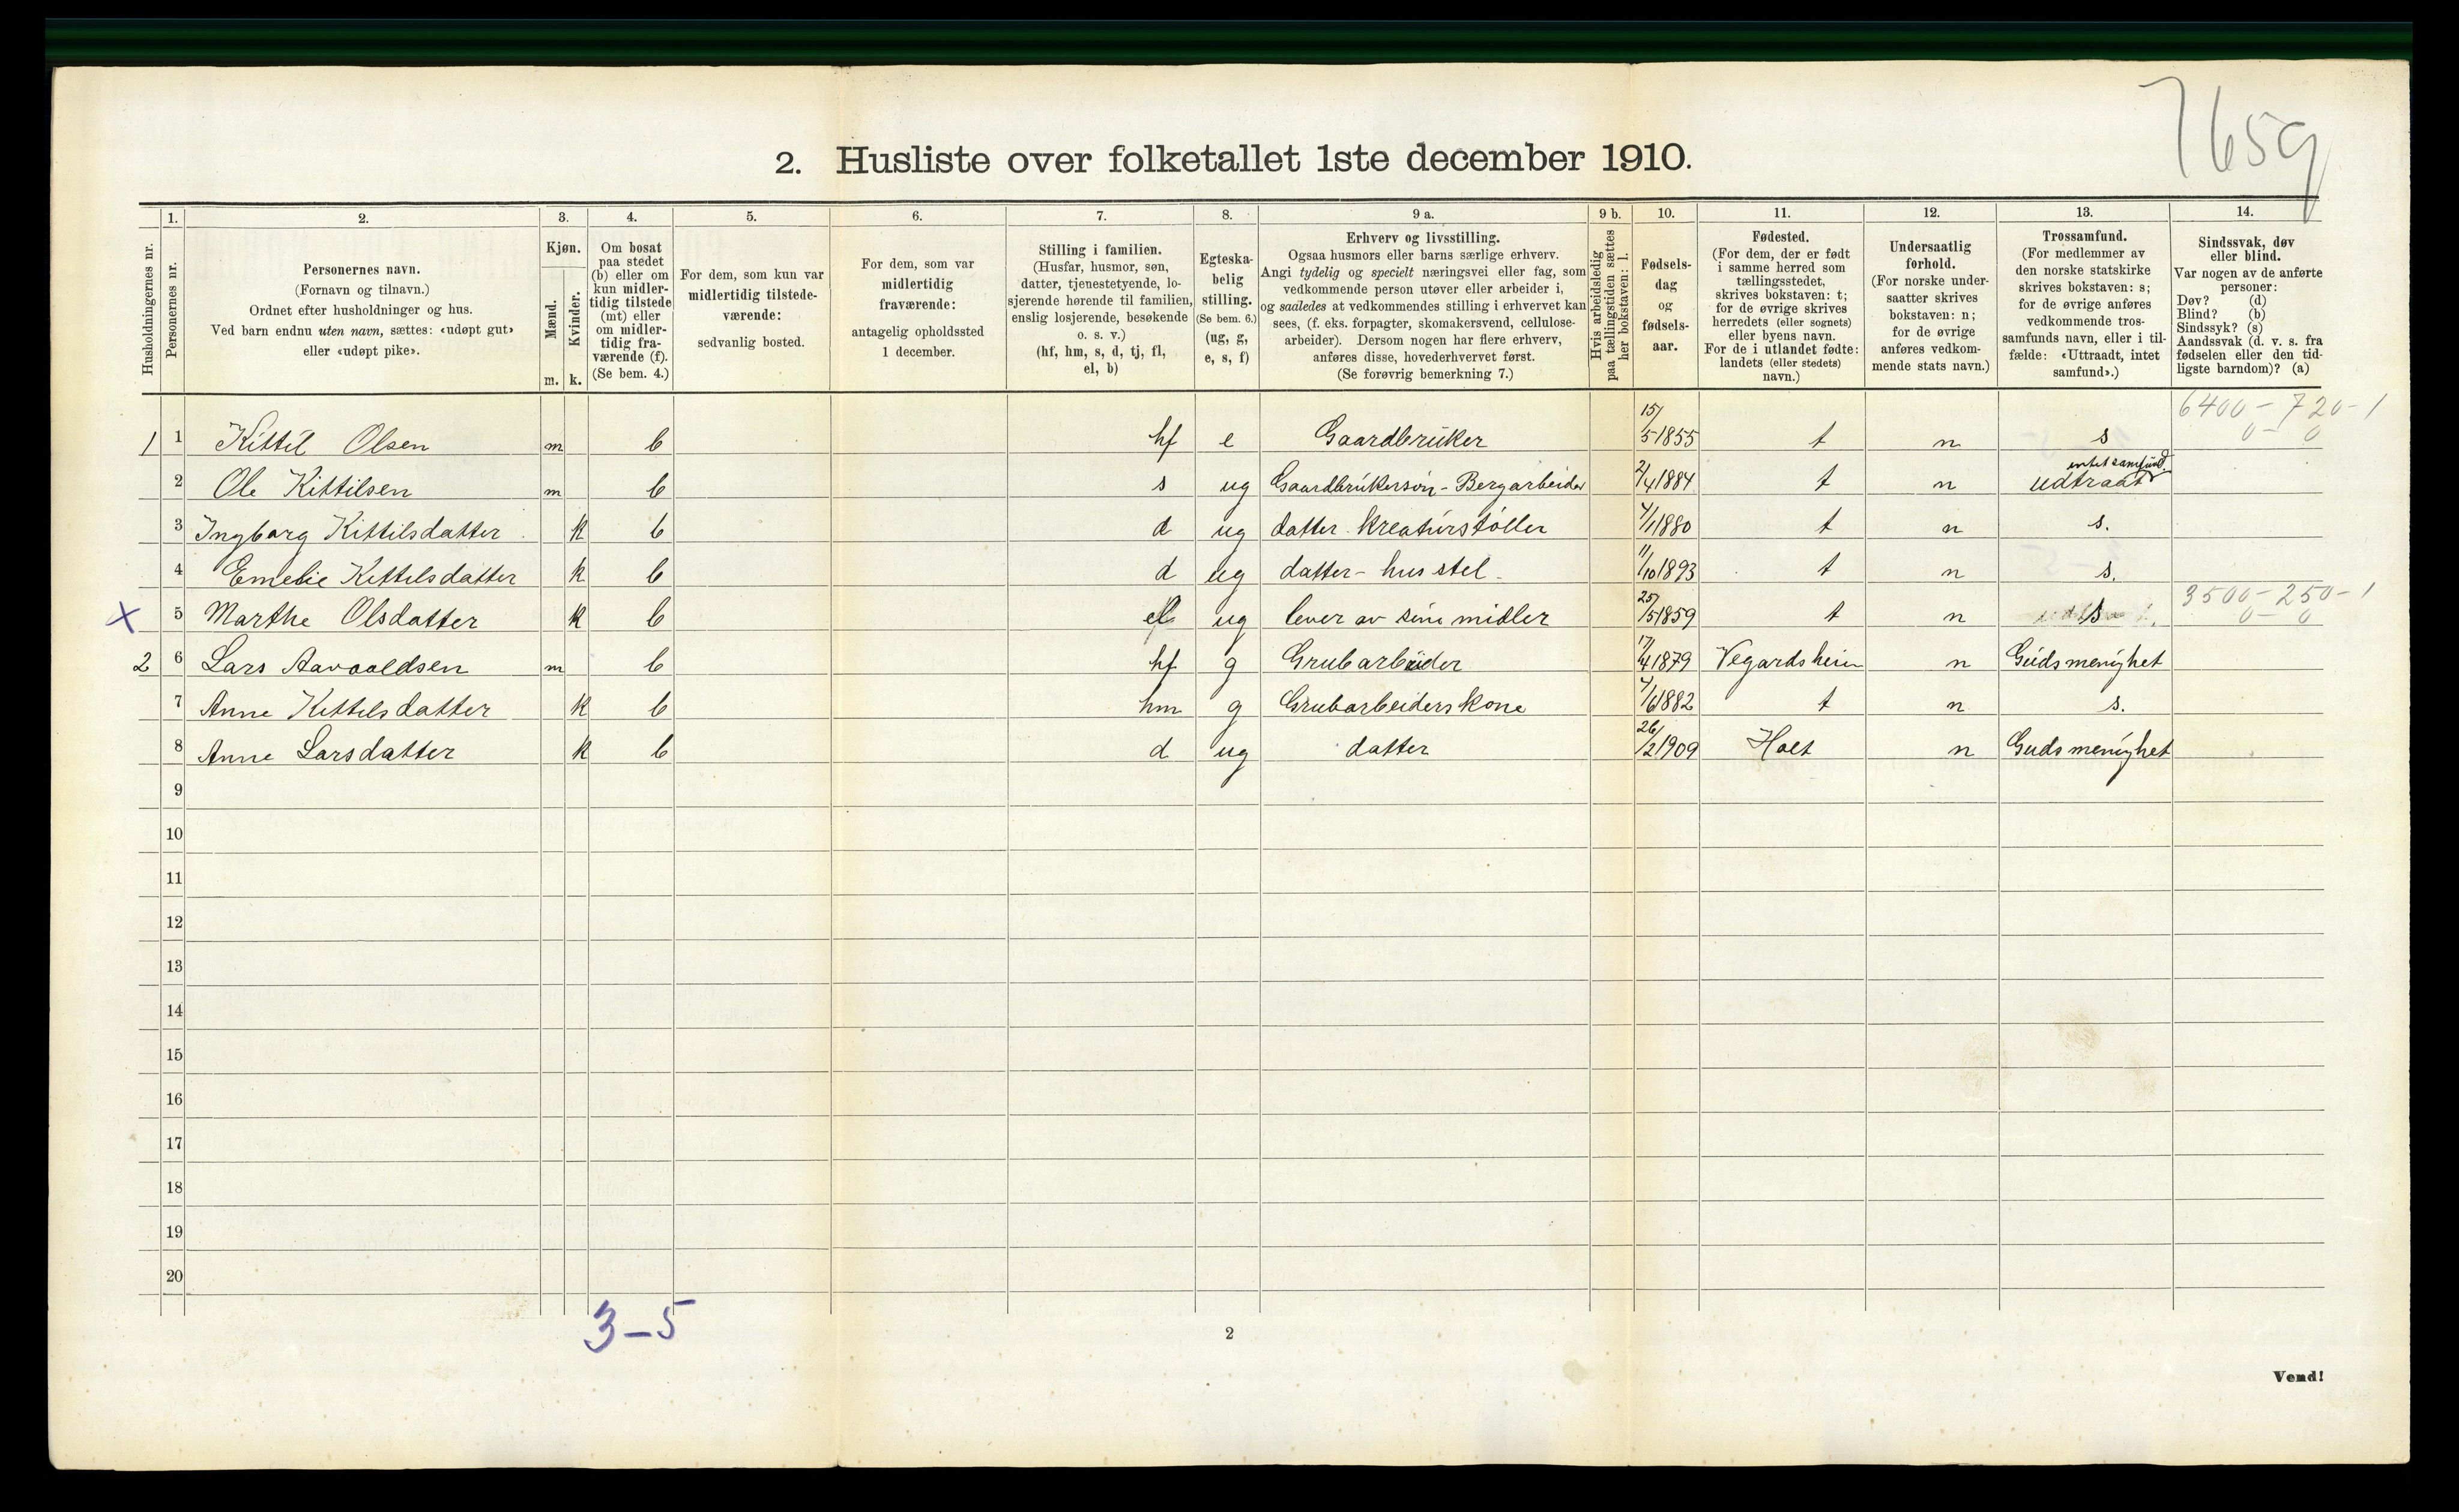 7659
2. Husliste over folketallet 1ste december 1910.
Husholdningernes nr.
1. Personernes nr.
2. Personernes navn.
(Fornavn og tilnavn.)
Ordnet efter husholdninger og hus.
Ved barn endnu uten navn, sættes: «udøpt gut»
eller «udøpt pike».
3. Kjøn.
Mænd. m.
Kvinder. k.
4. Om bosat
paa stedet
(b) eller om
kun midler-
tidig tilstede
(mt) eller
om midler-
tidig fra-
værende (f).
(Se bem. 4.)
5. For dem, som kun var
midlertidig tilstede-
værende:
sedvanlig bosted.
6. For dem, som var
midlertidig
fraværende:
antagelig opholdssted
1 december.
7. Stilling i familien.
(Husfar, husmor, søn,
datter, tjenestetyende, lo-
sjerende hørende til familien,
enslig losjerende, besøkende
o. s. v.)
(hf, hm, s, d, tj, fl,
el, b)
8. Egteska-
belig
stilling.
(Se bem. 6.)
(ug, g,
e, s, f)
9 a. Erhverv og livsstilling.
Ogsaa husmors eller barns særlige erhverv.
Angi tydelig og specielt næringsvei eller fag, som
vedkommende person utøver eller arbeider i,
og saaledes at vedkommendes stilling i erhvervet kan
sees, (f. eks. forpagter, skomakersvend, cellulose-
arbeider). Dersom nogen har flere erhverv,
anføres disse, hovederhvervet først.
(Se forøvrig bemerkning 7.)
9 b. Hvis arbeidsledig
paa tællingstiden sættes
her bokstaven: l.
10. Fødsels-
dag
og
fødsels-
aar.
11. Fødested.
(For dem, der er født
i samme herred som
tællingsstedet,
skrives bokstaven: t;
for de øvrige skrives
herredets (eller sognets)
eller byens navn.
For de i utlandet fødte:
landets (eller stedets)
navn.)
12. Undersaatlig
forhold.
(For norske under-
saatter skrives
bokstaven: n;
for de øvrige
anføres vedkom-
mende stats navn.)
13. Trossamfund.
(For medlemmer av
den norske statskirke
skrives bokstaven: s;
for de øvrige anføres
vedkommende tros-
samfunds navn, eller i til-
fælde: «Uttraadt, intet
samfund».)
14. Sindssvak, døv
eller blind.
Var nogen av de anførte
personer:
Døv? (d)
Blind? (b)
Sindssyk? (s)
Aandssvak (d. v. s. fra
fødselen eller den tid-
ligste barndom)? (a)
6400 - 720 - 1
1 1 Kittil Olsen m b hf e Gaardbruker 15/5 1855 t n s 0 - 0
intet samfund
2 Ole Kittilsen m b s ug Gaardbrukersøn - Bergarbeider 2/4 1884 t n udtraat
3 Ingborg Kittilsdatter k b d ug datter kreaturstøller 4/1 1880 t n s.
4 Emelie Kittilsdatter k b d ug datter - hus stel 11/10 1893 t n s.
3500 - 250 - 1
X 5 Marthe Olsdatter k b el ug lever av sine midler 25/5 1859 t n s 0 - 0
2 6 Lars Aavooldsen m b hf g Grubarbeider 17/4 1879 Vegardsheim n Guds menighet
7 Anne Kittilsdatter k b hm g Grubarbeiderskone 4/6 1882 t n s.
8 Anne Larsdatter k b d ug datter 26/2 1909 Holt n Guds menighet
9
10
11
12
13
14
15
16
17
18
19
20
3-5
2
Vend!